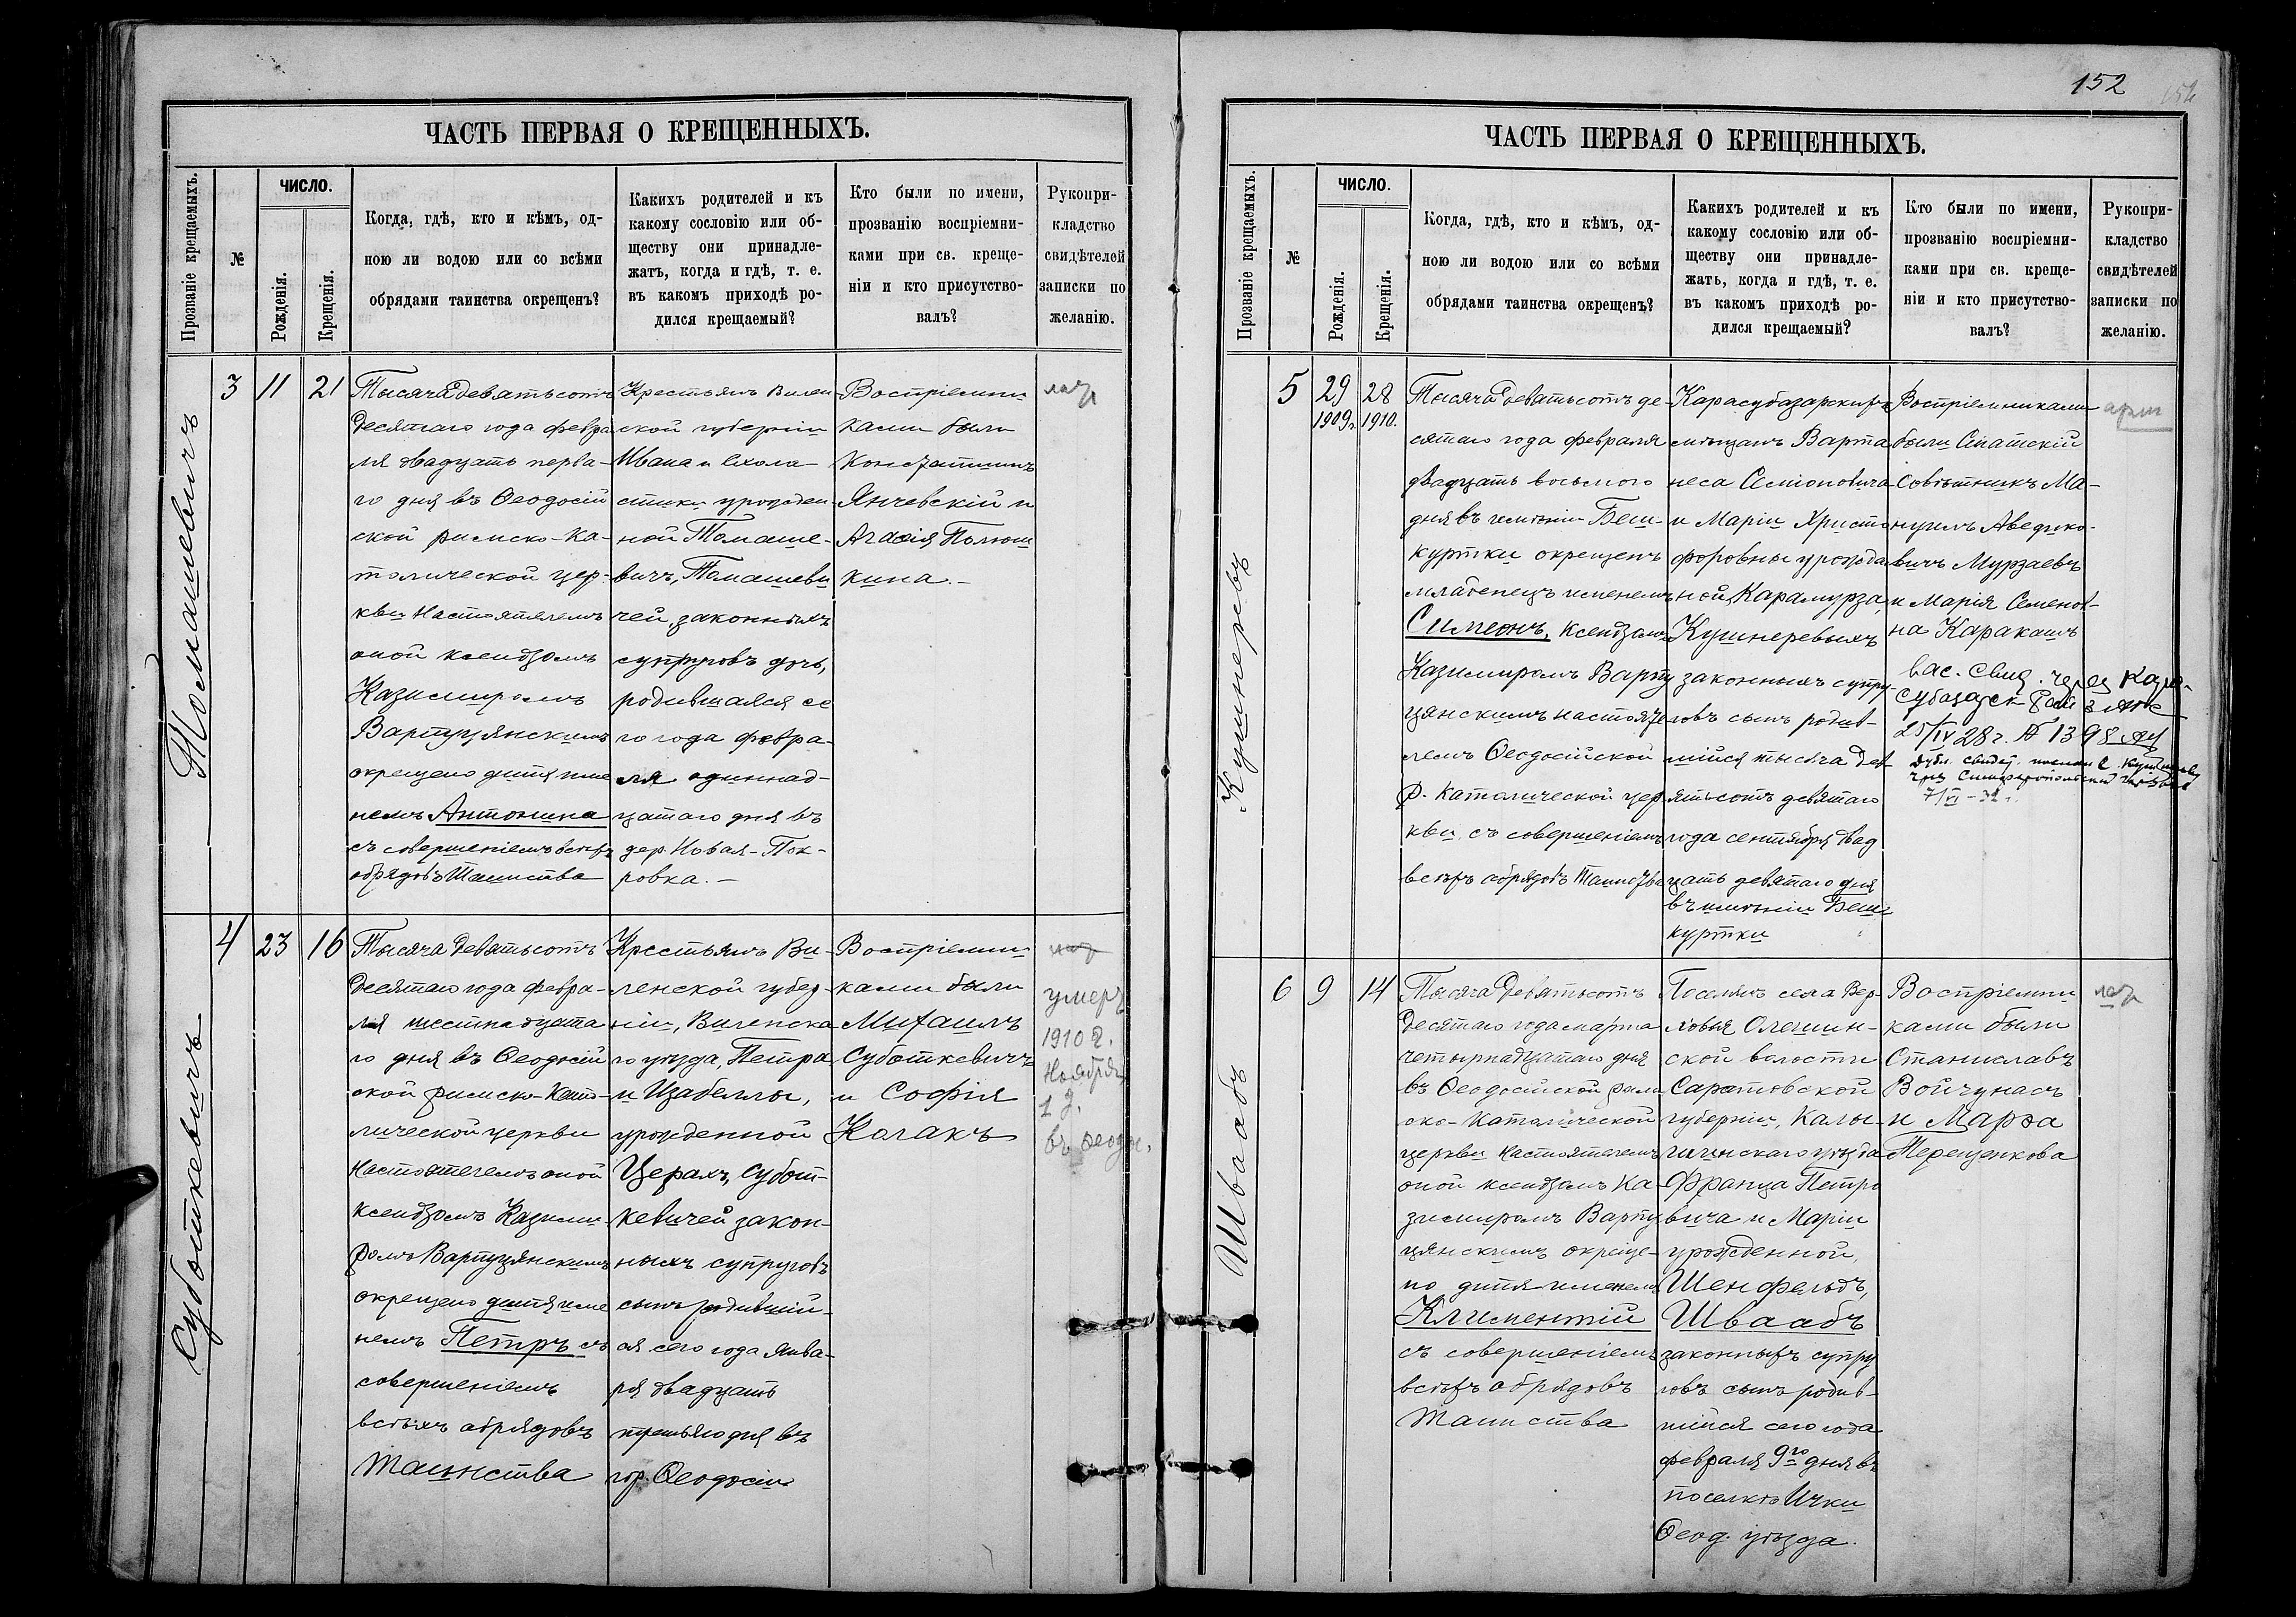 152
ЧАСТЬ ПЕРВАЯ О КРЕЩЕННЫХЪ.
Прозваніе крещаемыхъ.
№
ЧИСЛО.
Рожденія.
Крещенія.
Когда, гдѣ, кто и кѣмъ, од-
ною ли водою или со всѣми
обрядами таинства окрещенъ?
Какихъ родителей и къ
какому сословію или об-
ществу они принадле-
жатъ, когда и гдѣ, т. е.
въ какомъ приходѣ ро-
дился крещаемый?
Кто были по имени,
прозванію воспріемни-
ками при св. креще-
ніи и кто присутство-
валъ?
Рукопри-
кладство
свидѣтелей
записки по
желанію.
Томашевичъ
3
11
21
Тысяча девятьсотъ
десятаго года февра
ля двадцать перва-
го дня въ Ѳеодосій
ской римско-ка-
толической цер-
кви настоятелемъ
оной ксендзомъ
Казимиромъ
Варпуцянскимъ
окрещено дитя име
немъ Антонина
съ совершеніемъ всѣхъ
обрядовъ Таинства
Крестьянъ Вилен
ской губерніи
Ивана и Схола-
стики урожден
ной Томаше-
вичъ, Томашеви
чей, законныхъ
супруговъ дочь,
родившаяся се
го года февра-
ля одиннад-
цатаго дня въ
дер. Новая-Пок-
ровка. —
Воспріемни
ками были
Константинъ
Янчевскій и
Агафія Полюш
кина. —
Суботкевичъ
4
23
16
Тысяча девятьсотъ
десятаго года февра-
ля шестнадцата
го дня въ Ѳеодосій
ской римско-като-
лической церкви
настоятелемъ оной
ксендзомъ Казими-
ромъ Варпуцянскимъ
окрещено дитя име
немъ Петръ съ
совершеніемъ
всѣхъ обрядовъ
Таинства
Крестьянъ Ви-
ленской губер-
ніи, Виленска
го уѣзда, Петра
и Изабеллы,
урожденной
Церахъ, Субот-
кевичей закон-
ныхъ супруговъ
сынъ родившій-
ся сего года янва-
ря двадцать
третьяго дня въ
гор. Ѳеодосіи
Воспріемни-
ками были
Михаилъ
Суботкевичъ
и Софія
Колакъ
умеръ
1910 г.
Ноября
1 д.
въ Ѳеодос.
ЧАСТЬ ПЕРВАЯ О КРЕЩЕННЫХЪ.
Прозваніе крещаемыхъ.
№
ЧИСЛО.
Рожденія.
Крещенія.
Когда, гдѣ, кто и кѣмъ, од-
ною ли водою или со всѣми
обрядами таинства окрещенъ?
Какихъ родителей и къ
какому сословію или об-
ществу они принадле-
жатъ, когда и гдѣ, т. е.
въ какомъ приходѣ ро-
дился крещаемый?
Кто были по имени,
прозванію воспріемни-
ками при св. креще-
ніи и кто присутство-
валъ?
Рукопри-
кладство
свидѣтелей
записки по
желанію.
Кушнеревъ
5
29
1909г.
28
1910.
Тысяча девятьсотъ де-
сятаго года февраля
двадцать восьмого
дня въ имѣніи Беш-
куртки окрещенъ
младенецъ именемъ
Симеонъ, ксендзомъ
Казимиромъ Варпу
цянскимъ настояте
лемъ Ѳеодосійской
р. католической цер
кви съ совершеніемъ
всѣхъ обрядовъ Таинства
Карасубазарскихъ
мѣщанъ Варта
неса Семіоновича
и Маріи Христо
форовны урожда
ной Карамурза,
Кушнеревыхъ
законныхъ супру-
говъ сынъ родив-
шійся тысяча дев-
ятьсотъ девятаго
года сентября двад
цать девятаго дня
въ имѣніи Беш-
куртки
Воспріемниками
были Статскій
Совѣтникъ Ма-
нуилъ Аведико-
вичъ Мурзаевъ
и Марія Семенов-
на Каракашъ
25/IV 28 г. № 1398
арм
Шваабъ
6
9
14
Тысяча девятьсотъ
десятаго года марта
четырнадцатаго дня
въ Ѳеодосійской рим
ско-католической
церкви настоятелемъ
оной ксендзомъ Ка-
зимиромъ Варпу
цянскимъ окреще-
но дитя именемъ
Климентій
съ совершеніемъ
всѣхъ обрядовъ
Таинства
Поселянъ села Вер-
ловья Олешин-
ской волости
Саратовской
губерніи, Камы-
шинскаго уѣзда
Франца Петро
вича и Маріи
урожденной,
Шенфельдъ,
Шваабъ
законныхъ супру
говъ сынъ родив-
шійся сего года
февраля 9го дня въ
поселкѣ Ички
Ѳеод. уѣзда.
Воспріемни
ками были
Станиславъ
Войчунасъ
и Марѳа
Терещенкова